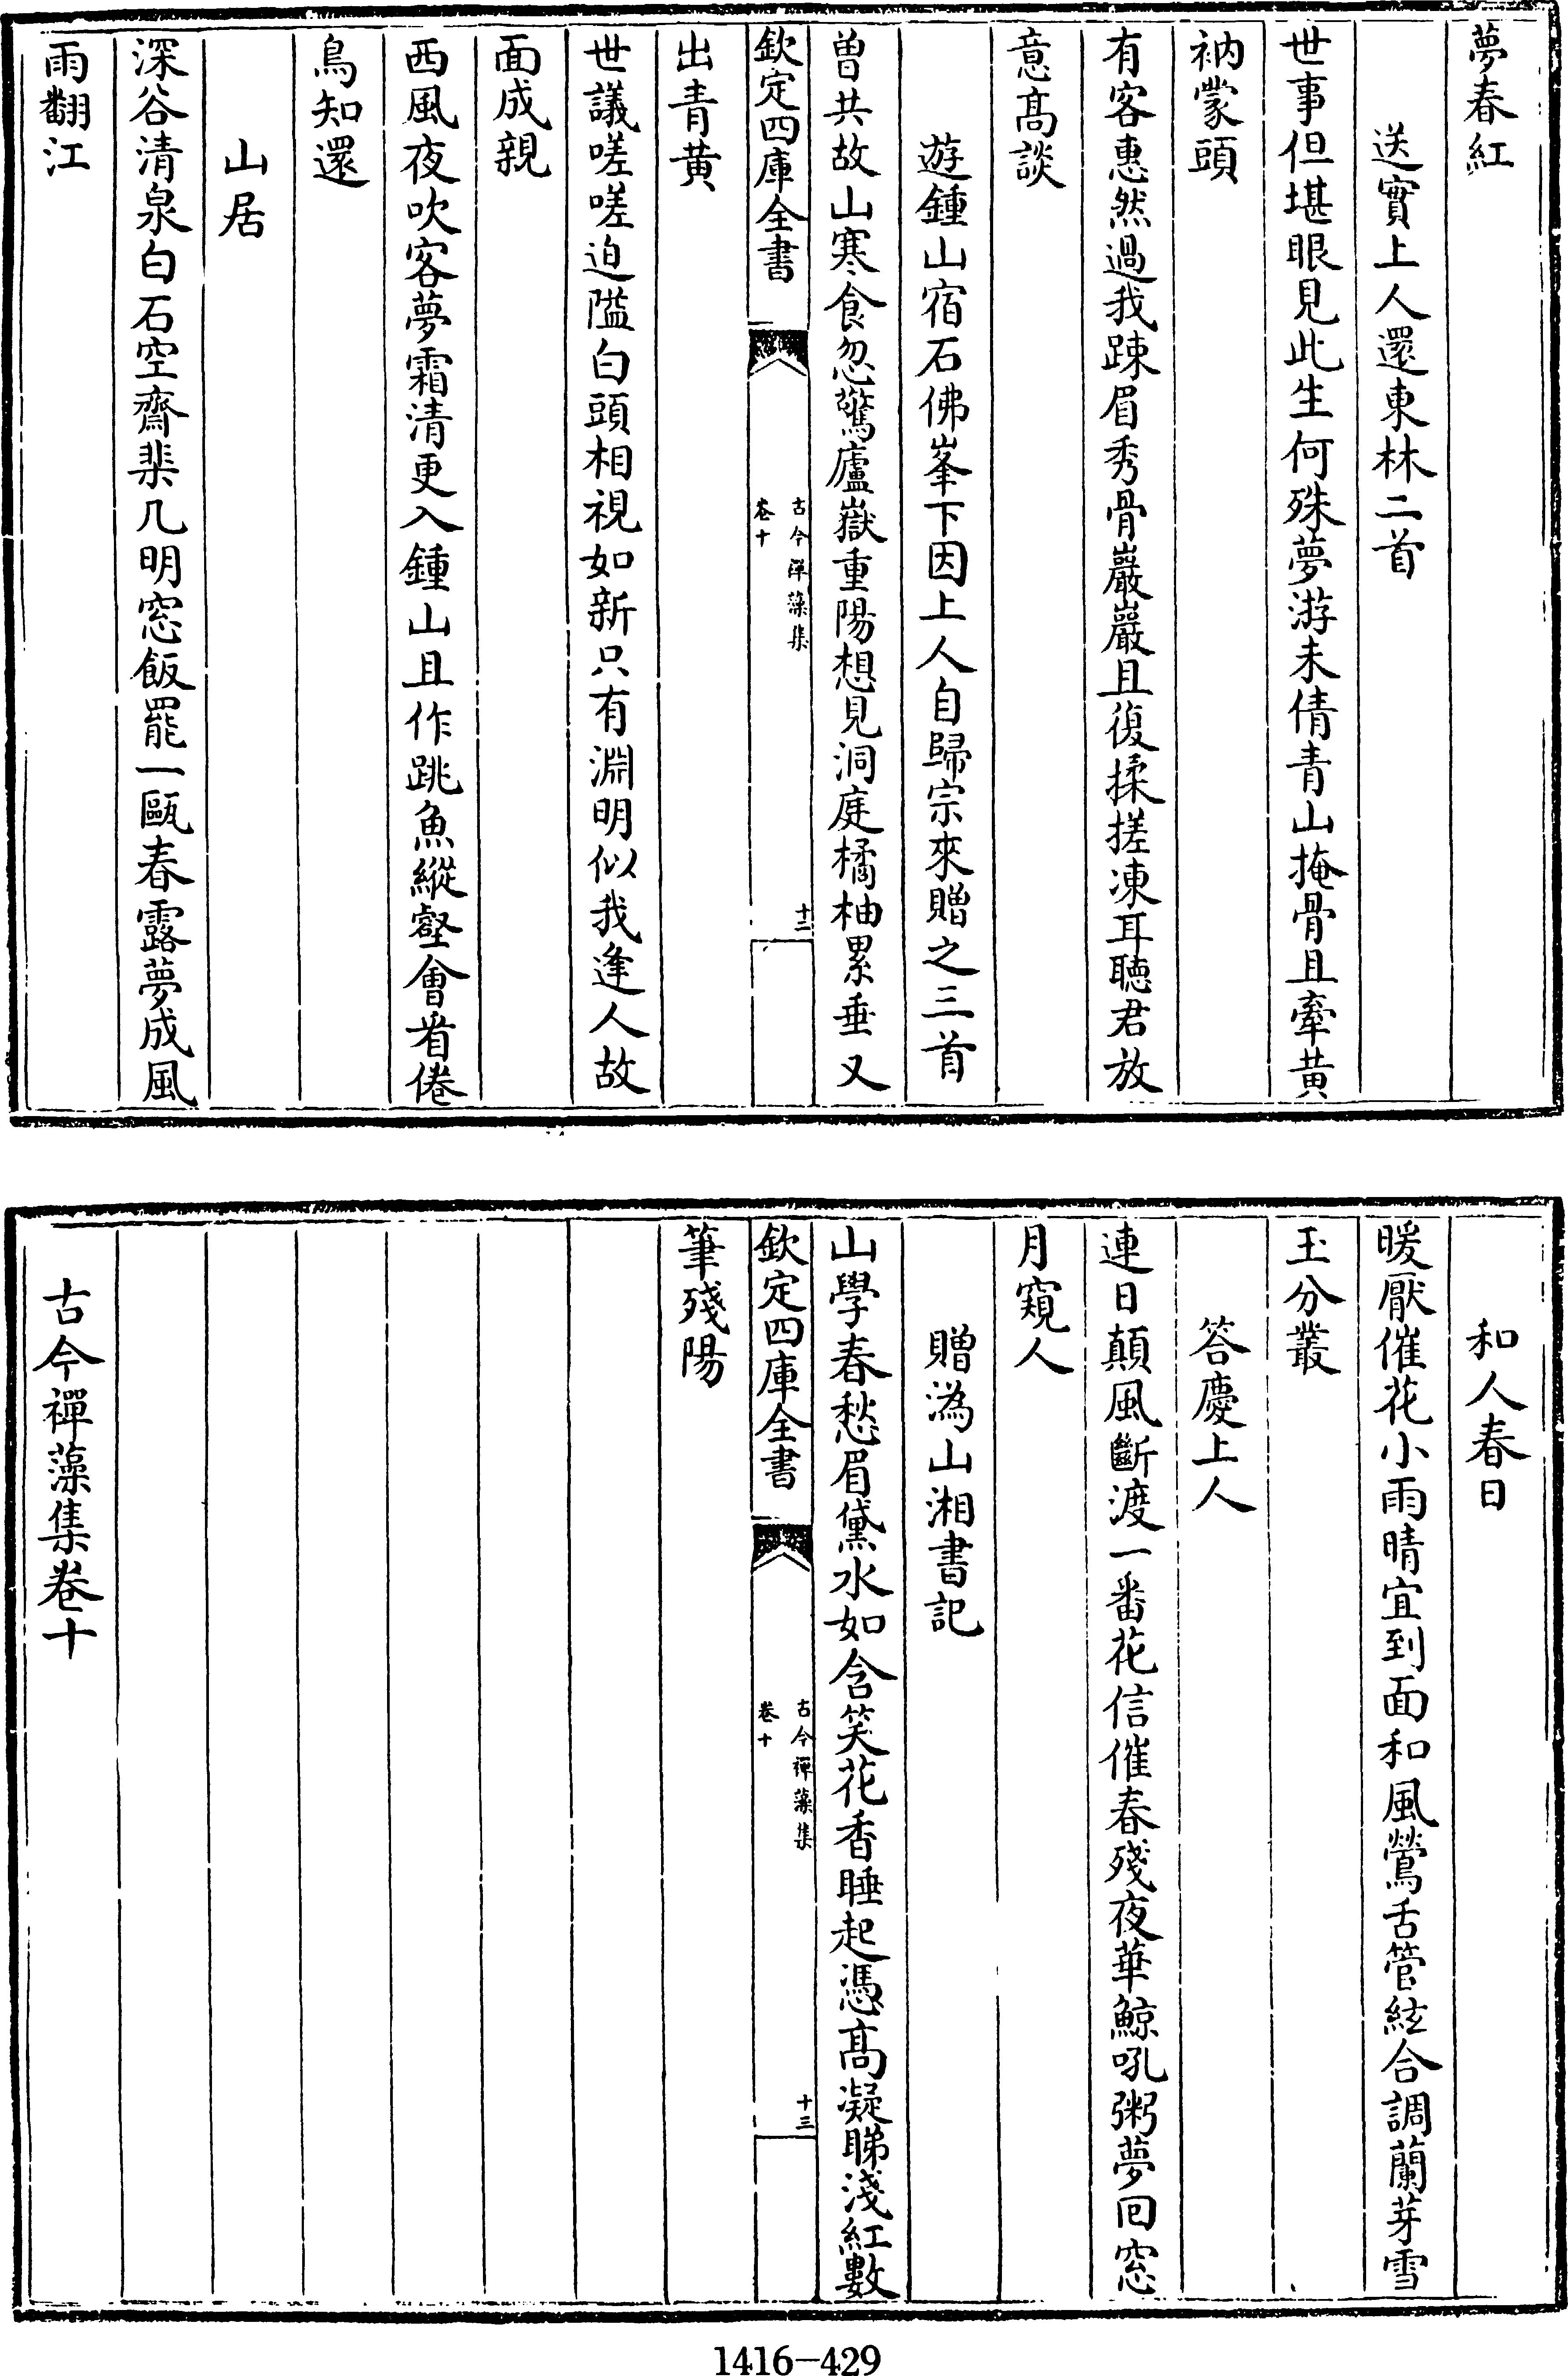 夢春紅
送實上人還東林二首
世事但堪眼見此生何殊夢游未倩青山掩骨且牽黄
衲蒙頭
有客惠然過我踈眉秀骨巖巖且復揉搓凍耳聴君放
意髙談
遊鍾山宿石佛峯下因上人自歸宗來贈之三首
曽共故山寒食忽驚廬嶽重陽想見洞庭橘柚累垂又
欽定四庫全書
古今禪藻集
卷十
十二
出青黄
世議嗟嗟迫隘白頭相視如新只有淵明似我逢人故
面成親
西風夜吹客夢霜清更入鍾山且作跳魚縱壑會看倦
鳥知還
山居
深谷清泉白石空齋棐几明窓飯罷一甌春露夢成風
雨翻江
和人春日
暖厭催花小雨晴宜到面和風鶯舌管絃合調蘭芽雪
玉分叢
答慶上人
連日顛風斷渡一番花信催春殘夜華鯨吼粥夢回窓
月窺人
贈溈山湘書記
山學春愁眉黛水如含笑花香睡起憑髙凝睇淺紅數
欽定四庫全書
古今禪藻集
卷十
十三
筆殘陽
古今禪藻集卷十
1416-429